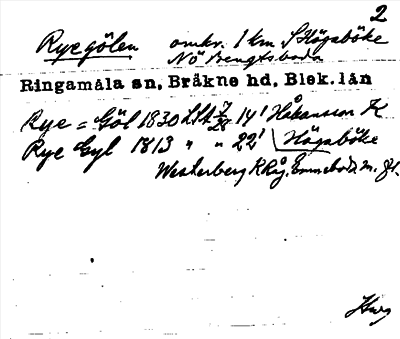 2
Ryegölen omkr. 1 km S Högaböke
NÖ Bengtsboda
Ringamåla sn, Bräkne hd, Blek. län
Rye = Göl 1830 LSA 7/28 14' Håkansson K
Rye Gyl 1813 " " 22' Högaböke
Westerberg K Rg. Emmeboda m. fl.